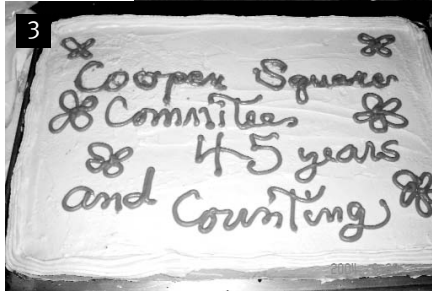 3
Cooper Square
Committee
45 years
and Counting